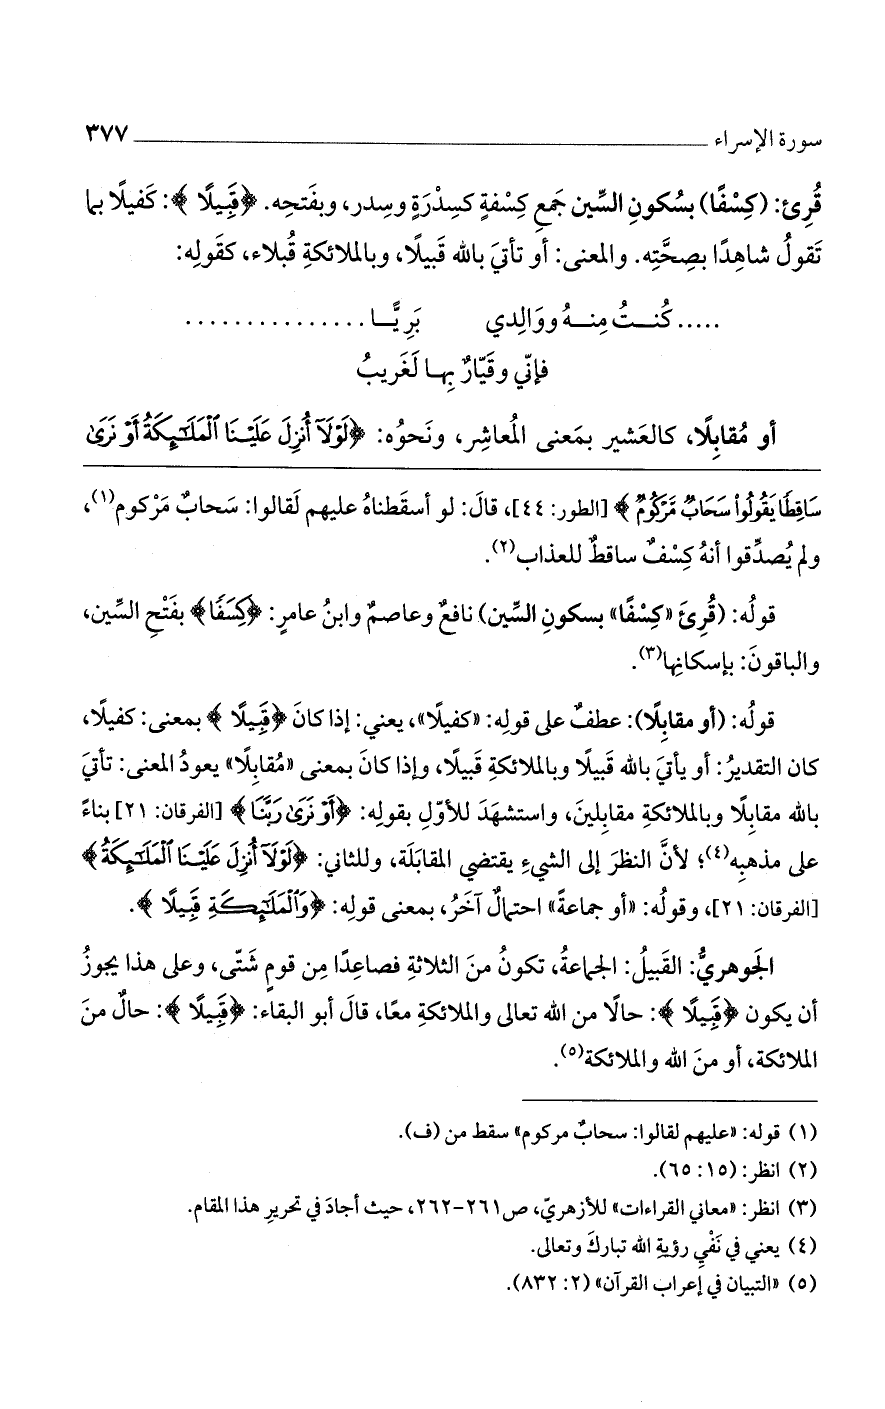 سورة الإسراء ٣٧٧
قُرِئ: (كِسْفًا) بسُكونِ السِّين جَمع كِسْفةٍ كسِدْرَةٍ وسِدر، وبفَتحِه. ﴿قَبِيلًا﴾: كَفيلًا بما
تَقولُ شاهِدًا بصِحَّتِه. والمعنى: أو تأتيَ بالله قَبيلًا، وبالملائكةِ قُبلاء، كقَولِه:
..... كُنــتُ مِنــهُ ووَالِدي بَرِيًّــا ...............
فإنّي وقَيّارٌ بِهــا لَغَريبُ
أو مُقابِلًا، كالعَشير بمَعنى المُعاشِر، ونَحوُه: ﴿لَوْلَآ أُنزِلَ عَلَيْنَا ٱلْمَلَـٰٓئِكَةُ أَوْ نَرَىٰ
سَاقِطًا يَقُولُوا۟ سَحَابٌ مَّرْكُومٌ﴾ [الطور: ٤٤]، قالَ: لو أسقَطناهُ عليهم لَقالوا: سَحابٌ مَرْكوم(١)،
ولم يُصدِّقوا أنهُ كِسْفٌ ساقطٌ للعذاب(٢).
قولُه: (قُرِئَ «كِسْفًا» بسكونِ السِّين) نافعٌ وعاصمٌ وابنُ عامرٍ: ﴿كِسَفًا﴾ بفَتْحِ السِّين،
والباقونَ: بإسكانِها(٣).
قولُه: (أو مقابِلًا): عطفٌ على قولِه: «كفيلًا»، يعني: إذا كانَ ﴿قَبِيلًا﴾ بمعنى: كفيلًا،
كان التقديرُ: أو يأتيَ بالله قَبيلًا وبالملائكةِ قَبيلًا، وإذا كانَ بمعنى «مُقابِلًا» يعودُ المعنى: تأتيَ
بالله مقابِلًا وبالملائكةِ مقابِلينَ، واستشهَدَ للأوّلِ بقولِه: ﴿أَوْ نَرَىٰ رَبَّنَا﴾ [الفرقان: ٢١] بناءً
على مذهبِه(٤)؛ لأنَّ النظرَ إلى الشيءِ يقتضي المقابَلَة، وللثاني: ﴿لَوْلَآ أُنزِلَ عَلَيْنَا ٱلْمَلَـٰٓئِكَةُ﴾
[الفرقان: ٢١]، وقولُه: «أو جماعةً» احتمالٌ آخَرُ، بمعنى قولِه: ﴿وَٱلْمَلَـٰٓئِكَةِ قَبِيلًا﴾.
الجَوهريُّ: القَبيلُ: الجماعةُ، تكونُ منَ الثلاثةِ فصاعِدًا مِن قومٍ شَتّى، وعلى هذا يجوزُ
أن يكون ﴿قَبِيلًا﴾: حالًا من الله تعالى والملائكةِ معًا، قالَ أبو البقاء: ﴿قَبِيلًا﴾: حالٌ منَ
الملائكة، أو منَ الله والملائكة(٥).
(١) قوله: «عليهم لقالوا: سحابٌ مركوم» سقط من (ف).
(٢) انظر: (١٥: ٦٥).
(٣) انظر: «معاني القراءات» للأزهريّ، ص٢٦١-٢٦٢، حيث أجادَ في تحريرِ هذا المقام.
(٤) يعني في نَفْيِ رؤيةِ الله تباركَ وتعالى.
(٥) «التبيان في إعراب القرآن» (٢: ٨٣٢).